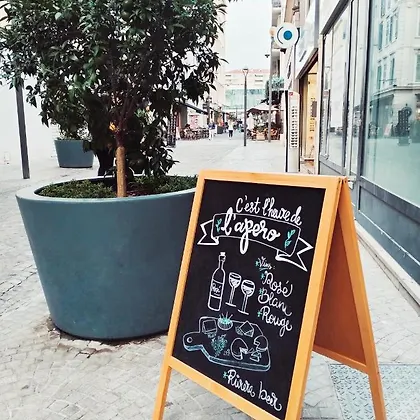 C'est l'heure de
l'apero
Vins:
Rosé
Blanc
Rouge
Riviera beer